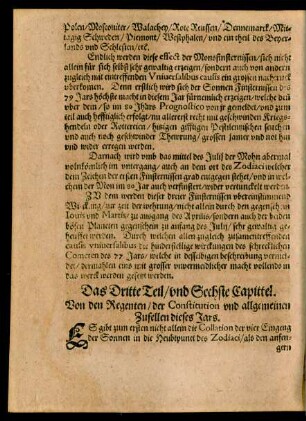 Polen/Moscouiter/Walachey/Rote Reussen/Dennemarck/Mit-
tagig Schweden/Piemont/Westphalen/vnd ein theil des Beyer-
lands vnd Schlesien/etc.
Endlich werden diese effect der Monsfinsternissen/sich nicht
allein für sich selbs sehr gewaltig eregen/sondern auch von andern
zugleich mit eintreffenden Vniuersalibus causis ein grossen nachtruck
vberkomen. Denn erstlich wird sich der Sonnen Finsternuß des
79 Jars höchste macht in diesem Jar fürnemlich erzeigen/welche da
vber den/so im 80 Jhars Prognostico von jr gemeldet/vnd zum
teil auch hefftiglich erfolgt/nu allererst recht mit geschwinden Kriegs-
hendeln oder Rottereien/hitzigen gifftigen Pestilentzischen seuchen
vnd auch noch geschwinder Thewrung/grossen Jamer vnd not hin
vnd wider erregen werden.
Darnach wird vmb das mittel des Julij der Mohn abermal
volnkömlich im vntergang/auch an dem ort des Zodiaci welchs
dem Zeichen der ersten Finsternissen grad entgegen stehet/vnd in wel-
chem der Mon im 80 Jar auch verfinstert/wider vertunckelt werden.
ZV dem werden diese beider Finsternissen vbereinstimmend
Wirckung/zur zeit der wohnung/nicht allein durch den gegenschein
Iouis vnd Martis/zu ausgang des Aprilis/sondern auch der beiden
bösen Planeten gegenschein zu anfang des Julij/sehr gewaltig ge-
heuffet werden. Durch welchen allen zugleich zusamentreffenden
causis vniuersalibus die hinderstellige wirckungen des schrecklichen
Cometen des 77 Jars/welche in desselbigen beschreibung vermel-
det/dermahlen eins mit grosser vnvermeidlicher macht vollends in
das werck werden gesetzt werden.
Das Dritte Teil/vnd Sechste Capittel.
Von den Regenten/der Constitution vnd allgemeinen
Zufellen dieses Jars.
ES gibt zum ersten nicht allein die Collation der vier Eingeng
der Sonnen in die Heubtpunct des Zodiaci/als den anfen-
gen